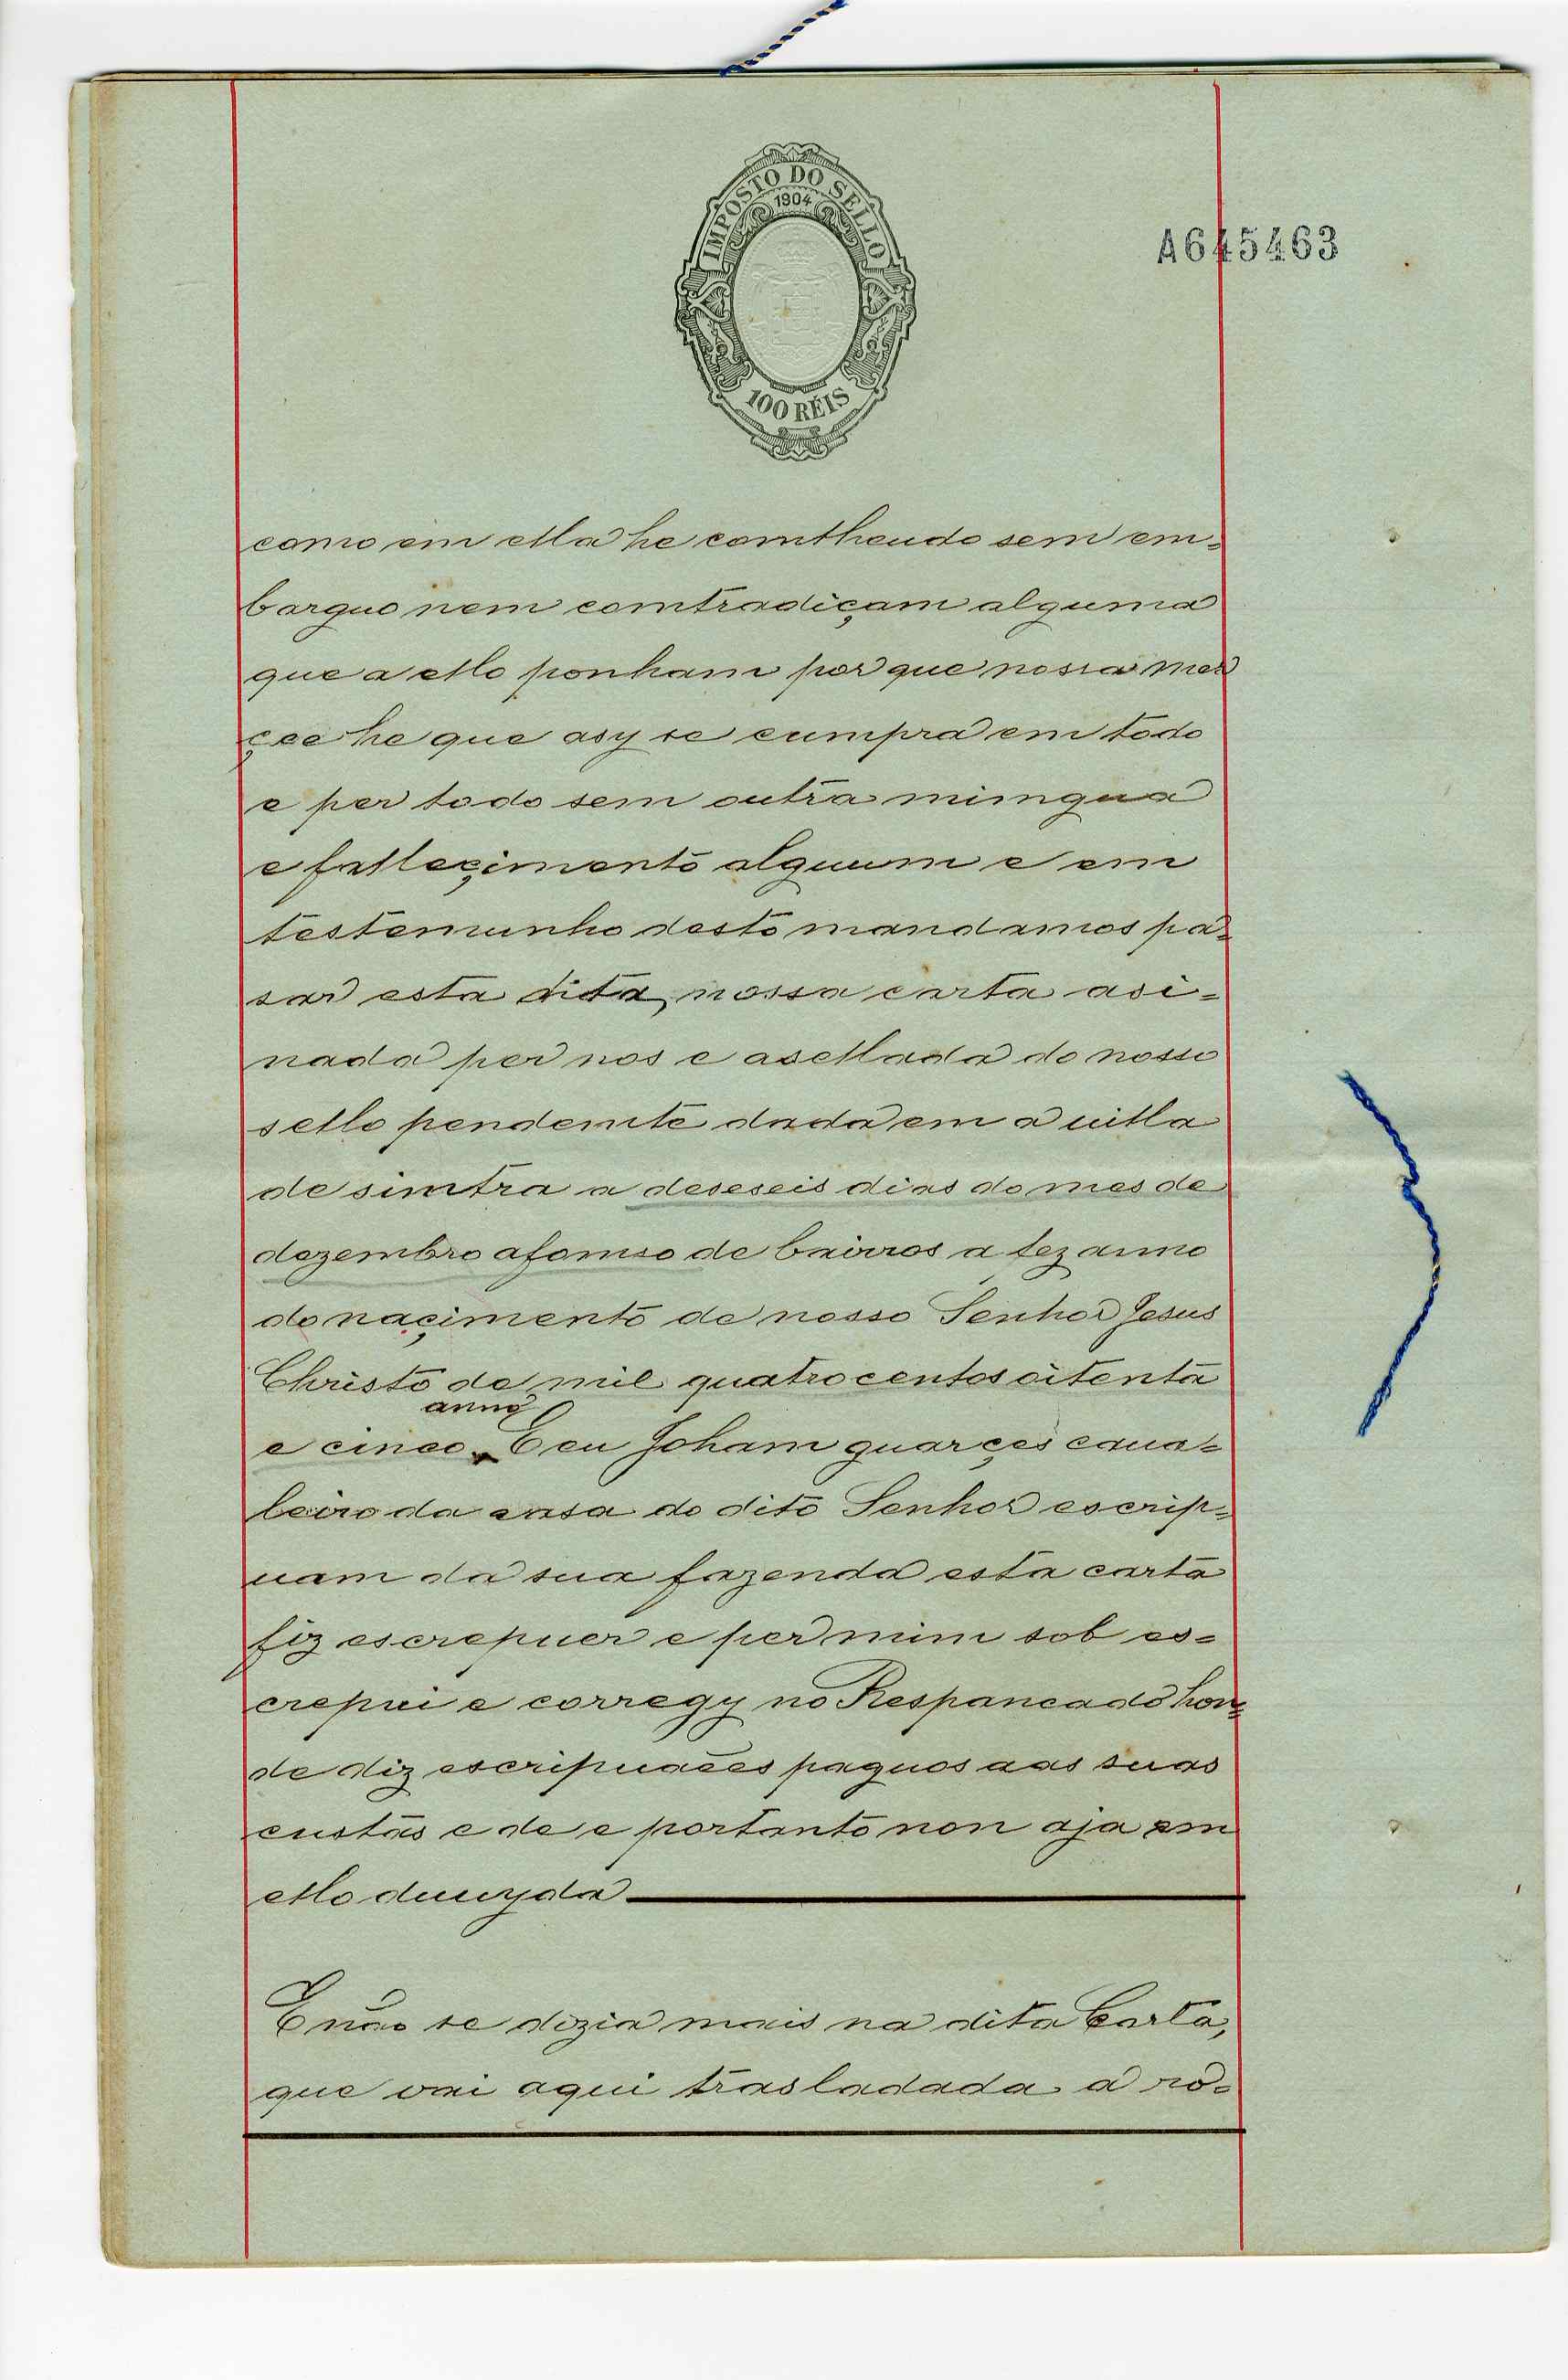 IMPOSTO DO SELLO
1904
100 RÉIS
A645463
como em ella he comtheudo sem em=
barguo nem comtradiçam alguma
que a ello ponham por que nossa mer
çee he que asy se cumpra em todo
e per todo sem outra mimgua
e falleçimento alguum e em
testemunho desto mandamos pa=
sar esta dita, nossa carta asi=
nada per nos e asellada do nosso
sello pendemte dada em a uilla
de simtra a deseseis dias do mes de
dezembro afomso de bairros a fez anno
do naçimento de nosso Senhor Jesus
Christo de mil quatrocentos oitenta
anno
e cinco. E eu Joham guarçes caua=
leiro da casa do dito Senhor escrip=
uam da sua fazenda esta carta
fiz escrepuer e per mim sob es=
crepui e corregy no Respancado hon=
de diz escripuaẽes paguos aas suas
custas e de e portanto non aja em
ello duuyda
E não se dizia mais na dita Carta,
que vai aqui trasladada a ro=